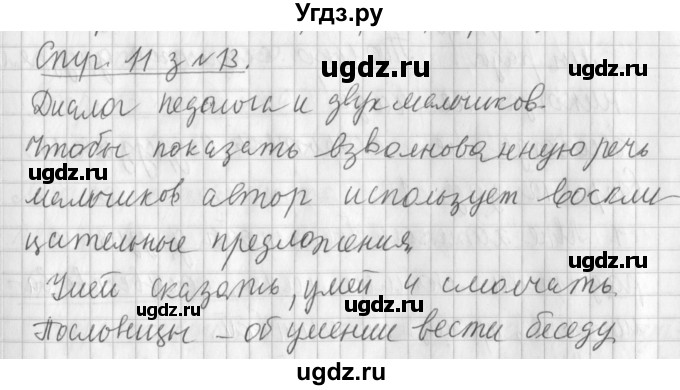 Угдз.ру
Стр. 11 з №13.
ugdz.ru
ugdz.ru
Диалог педагога и двух мальчиков.
ugdz.ru
Чтобы показать взволнованную речь
мальчиков автор использует воскли-
ugdz.ru
ugdz.ru
цательные предложения.
ugdz.ru
Умей сказать, умей и смолчать.
ugdz.ru
Пословицы – об умении вести беседу
ugdz.ru
ugdz.ru